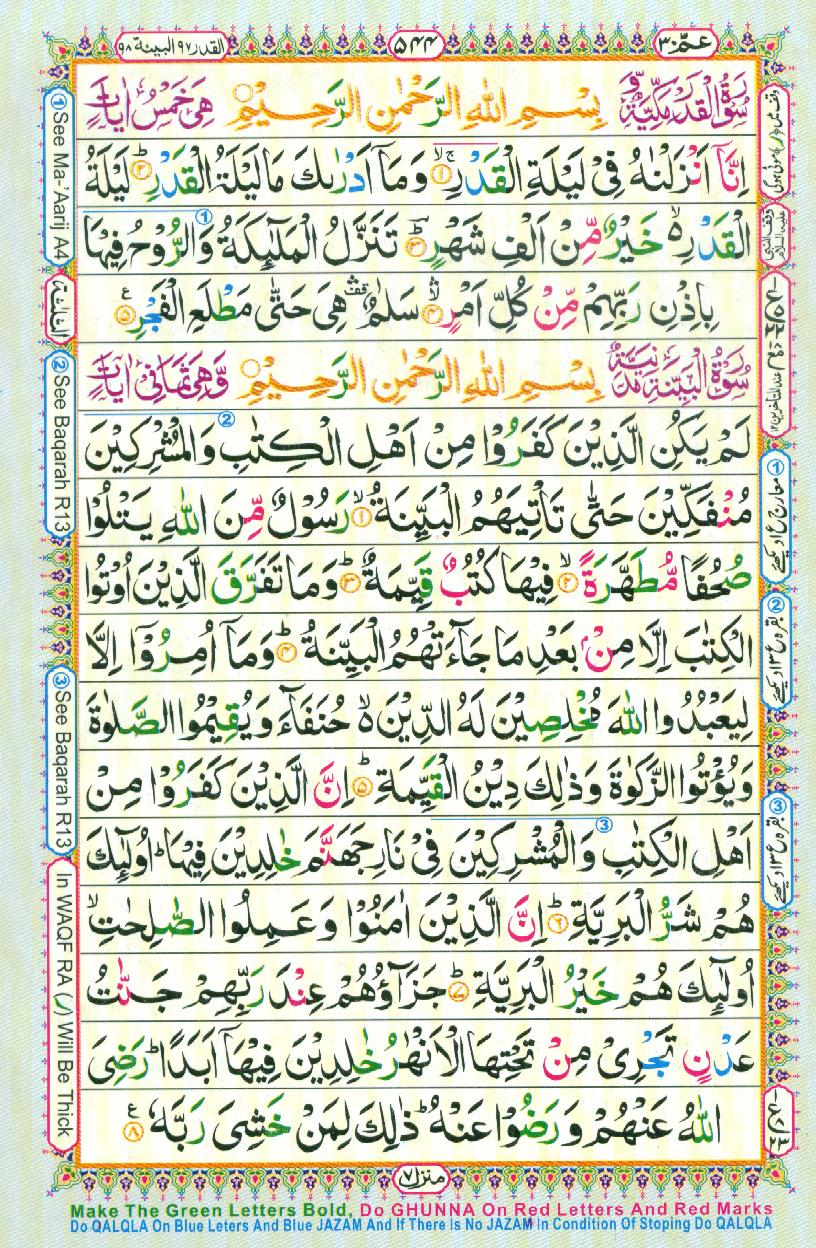 عمّ ٣٠
٥٤٤
القدر ٩٧ البينة ٩٨
سُوْرَةُ الْقَدْرِ مَكِّيَّةٌ وَّ بِسْمِ اللهِ الرَّحْمٰنِ الرَّحِيْمِ هِىَ خَمْسُ اٰيَاتٍ
اِنَّاۤ اَنْزَلْنٰهُ فِىْ لَيْلَةِ الْقَدْرِ ۚۖ ﴿۱﴾ وَمَاۤ اَدْرٰىكَ مَا لَيْلَةُ الْقَدْرِؕ ﴿۲﴾ لَيْلَةُ
الْقَدْرِ ۙ خَيْرٌ مِّنْ اَلْفِ شَهْرٍؕ ﴿۳﴾ تَنَزَّلُ الْمَلٰٓئِكَةُ وَالرُّوْحُ فِيْهَا
بِاِذْنِ رَبِّهِمْ مِّنْ كُلِّ اَمْرٍ ۙۛ ﴿۴﴾ سَلٰمٌ ۛ هِىَ حَتّٰى مَطْلَعِ الْفَجْرِ ﴿۵﴾ ع
سُوْرَةُ الْبَيِّنَةِ مَدَنِيَّةٌ بِسْمِ اللهِ الرَّحْمٰنِ الرَّحِيْمِ وَّهِىَ ثَمَانِىْ اٰيَاتٍ
لَمْ يَكُنِ الَّذِيْنَ كَفَرُوْا مِنْ اَهْلِ الْكِتٰبِ وَالْمُشْرِكِيْنَ
مُنْفَكِّيْنَ حَتّٰى تَاْتِيَهُمُ الْبَيِّنَةُ ۙ ﴿۱﴾ رَسُوْلٌ مِّنَ اللهِ يَتْلُوْا
صُحُفًا مُّطَهَّرَةً ۙ ﴿۲﴾ فِيْهَا كُتُبٌ قَيِّمَةٌ ؕ ﴿۳﴾ وَمَا تَفَرَّقَ الَّذِيْنَ اُوْتُوا
الْكِتٰبَ اِلَّا مِنْۢ بَعْدِ مَا جَآءَتْهُمُ الْبَيِّنَةُ ؕ ﴿۴﴾ وَمَاۤ اُمِرُوْۤا اِلَّا
لِيَعْبُدُوا اللهَ مُخْلِصِيْنَ لَهُ الدِّيْنَ ۙ حُنَفَآءَ وَيُقِيْمُوا الصَّلٰوةَ
وَيُؤْتُوا الزَّكٰوةَ وَذٰلِكَ دِيْنُ الْقَيِّمَةِ ؕ ﴿۵﴾ اِنَّ الَّذِيْنَ كَفَرُوْا مِنْ
اَهْلِ الْكِتٰبِ وَالْمُشْرِكِيْنَ فِىْ نَارِ جَهَنَّمَ خٰلِدِيْنَ فِيْهَا ؕ اُولٰٓئِكَ
هُمْ شَرُّ الْبَرِيَّةِ ؕ ﴿۶﴾ اِنَّ الَّذِيْنَ اٰمَنُوْا وَعَمِلُوا الصّٰلِحٰتِ ۙ
اُولٰٓئِكَ هُمْ خَيْرُ الْبَرِيَّةِ ؕ ﴿۷﴾ جَزَآؤُهُمْ عِنْدَ رَبِّهِمْ جَنّٰتُ
عَدْنٍ تَجْرِىْ مِنْ تَحْتِهَا الْاَنْهٰرُ خٰلِدِيْنَ فِيْهَاۤ اَبَدًا ؕ رَضِىَ
اللهُ عَنْهُمْ وَرَضُوْا عَنْهُ ؕ ذٰلِكَ لِمَنْ خَشِىَ رَبَّهٗ ﴿۸﴾ ع
منزل ٧
① See Ma-'Aarij A4
② See Baqarah R13
③ See Baqarah R13
In WAQF RA (ر) Will Be Thick
① معارج ع ا دیکھئے
② بقرہ ع ۱۳ دیکھئے
③ بقرہ ع ۱۳ دیکھئے
Make The Green Letters Bold, Do GHUNNA On Red Letters And Red Marks
Do QALQLA On Blue Leters And Blue JAZAM And If There Is No JAZAM In Condition Of Stoping Do QALQLA